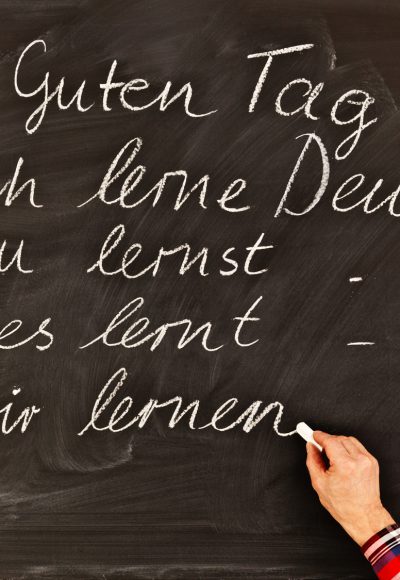 Guten Tag
ch lerne Deu
u lernst -
es lernt -
ir lernen